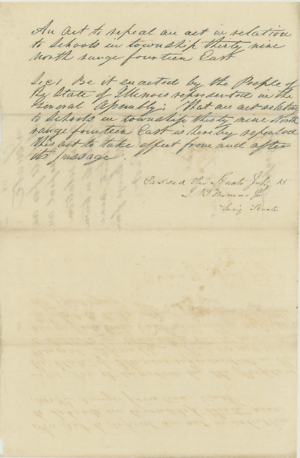 An act to repeal an act in relation
to schools in township thirty nine
north range fourteen East
Sec 1 Be it enacted by the People of
the State of Illinois represented in the
General Assembly: That an act relating
to schools in township thirty nine North
range fourteen East is hereby repealed
this act to take effect from and after
its passage.
Passed the Senate July
Secy Senate